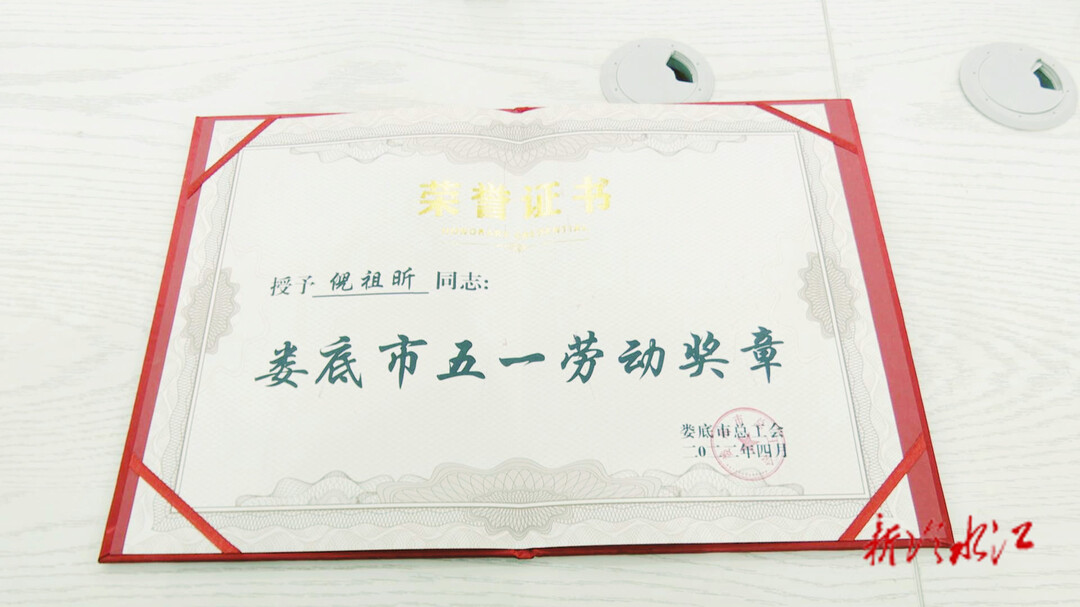 荣誉证书
授予 倪祖昕 同志:
娄底市五一劳动奖章
娄底市总工会
二0二二年四月
新冷水江